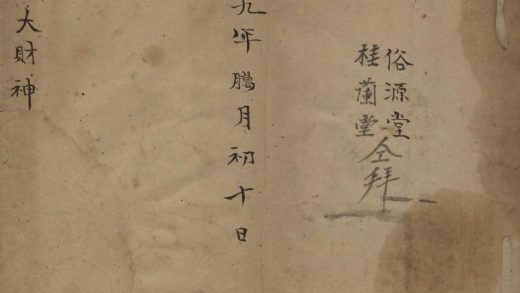 俗源堂
桂蘭堂
仝拜
九年臈月初十日
大財神